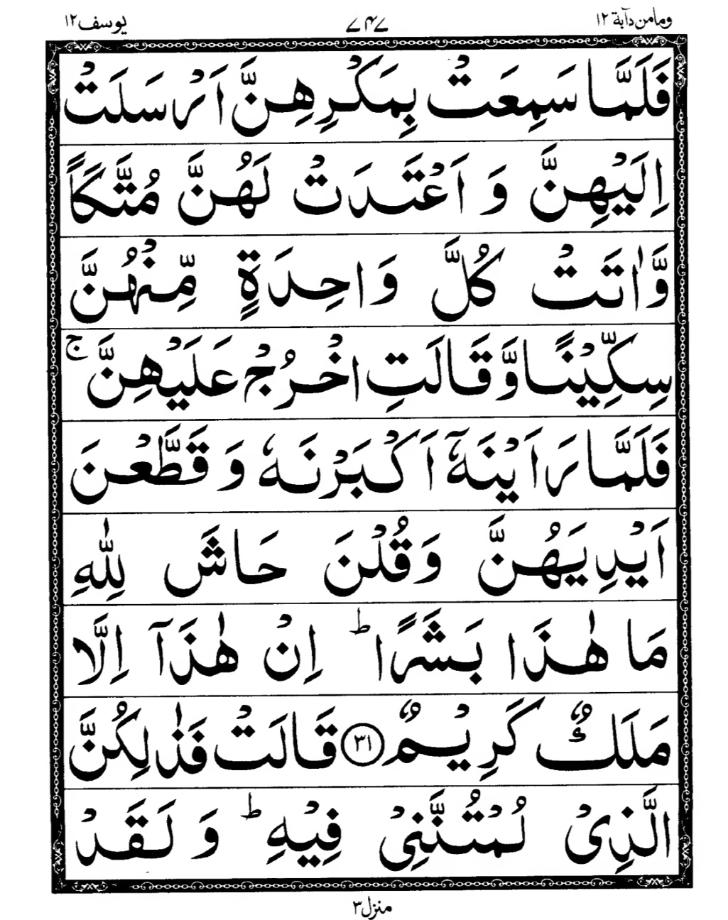 ومامن دآبة ١٢ ٧٤٧ يوسف ١٢
فَلَمَّا سَمِعَتْ بِمَكْرِهِنَّ اَرْسَلَتْ
اِلَيْهِنَّ وَ اَعْتَدَتْ لَهُنَّ مُتَّكَاً
وَّاٰتَتْ كُلَّ وَاحِدَةٍ مِّنْهُنَّ
سِكِّيْنًا وَّقَالَتِ اخْرُجْ عَلَيْهِنَّ ۚ
فَلَمَّا رَاَيْنَهٗۤ اَكْبَرْنَهٗ وَ قَطَّعْنَ
اَيْدِيَهُنَّ وَقُلْنَ حَاشَ لِلّٰهِ
مَا هٰذَا بَشَرًا ؕ اِنْ هٰذَاۤ اِلَّا
مَلَكٌ كَرِيْمٌ ٣١ قَالَتْ فَذٰلِكُنَّ
الَّذِيْ لُمْتُنَّنِيْ فِيْهِ ؕ وَ لَقَدْ
منزل ٣